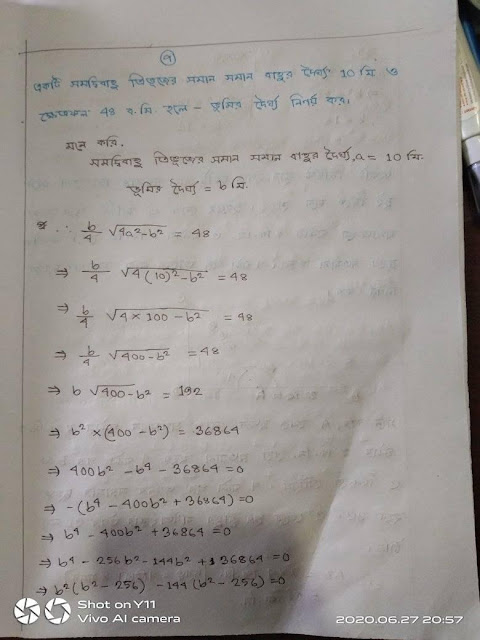 ৭
একটি সমদ্বিবাহু ত্রিভুজের সমান সমান বাহুর দৈর্ঘ্য 10 মি ও
ক্ষেত্রফল 48 ব.মি. হলে - ভূমির দৈর্ঘ্য নির্ণয় কর।
মনে করি,
সমদ্বিবাহু ত্রিভুজের সমান সমান বাহুর দৈর্ঘ্য, a = 10 মি.
ভূমির দৈর্ঘ্য = b মি.
∴ b/4 √4a²-b² = 48
⇒ b/4 √4(10)²-b² = 48
⇒ b/4 √4×100-b² = 48
⇒ b/4 √400-b² = 48
⇒ b √400-b² = 192
⇒ b² × (400 - b²) = 36864
⇒ 400b² - b⁴ - 36864 = 0
⇒ -(b⁴ - 400b² + 36864) = 0
⇒ b⁴ - 400b² + 36864 = 0
⇒ b⁴ - 256b² - 144b² + 36864 = 0
⇒ b²(b² - 256) - 144(b² - 256) = 0
Shot on Y11
Vivo AI camera
2020.06.27 20:57